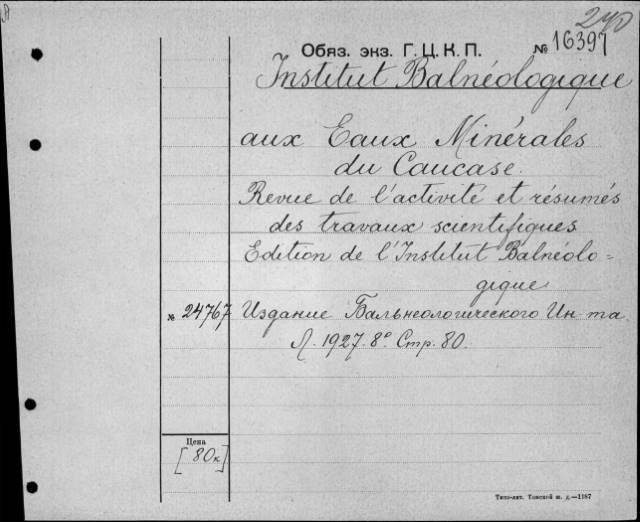 240
Обяз. экз. Г. Ц. К. П. № 16397
Institut Balnéologique
aux Eaux Minérales
du Caucase.
Revue de l'activité et résumés
des travaux scientifiques
Edition de l'Institut Balnéolo-
gique
№ 24767 Издание Бальнеологического Ин-та.
Л. 1927. 8° Стр. 80.
Цена
[80к]
Типо-лит. Томской ж. д.—1187